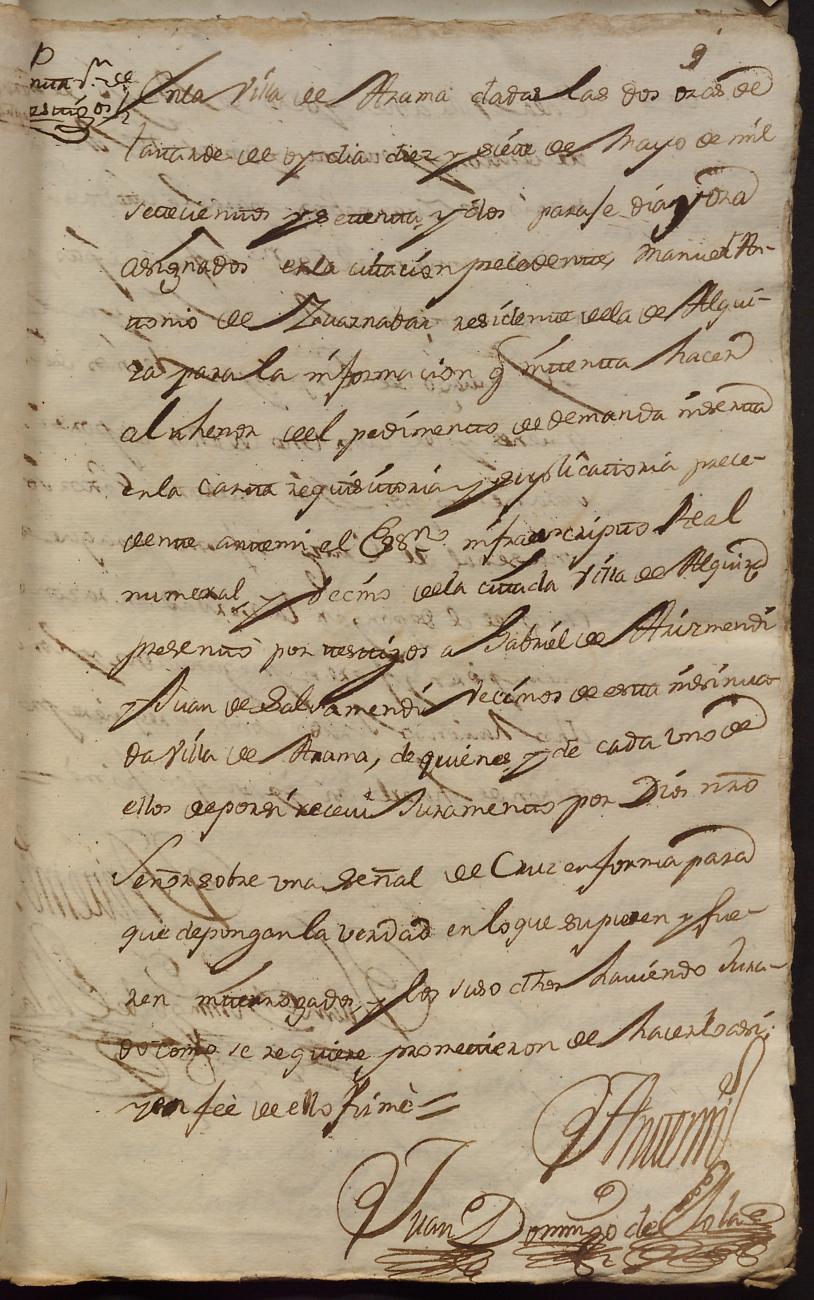 9
En la Villa de Arama dadas las dos oras de
la tarde de oy dia diez y siete de Mayo de mil
setecientos y setenta y dos para se dia y ora
asignados en la citacion precedente, Manuel An-
tonio de Zuaznabar residente en la de Alegui-
ra para la informacion q intenta hacer
al thenor del pedimento de demanda inserta
en la carta requisitoria y suplicatoria prece-
dente ante mi el Essno infraescripto Real
numeral y vecino de la citada Villa de Alegria
presento por testigos a Gabriel de Aurmendi
y Juan de Galvamendi vecinos de esta insinua-
da Villa de Arama, de quienes y de cada uno de
ellos de por si receivi Juramento por Dios nro
Señor sobre una Señal de Cruz en forma para
que depongan la verdad en lo que supieren y fue-
ren interrogados, y los suso dhos haviendo Jura-
do como se requiere prometieron de hacerlo asi;
y en feé de ello firmé =
Ante mi
Juan Domingo de